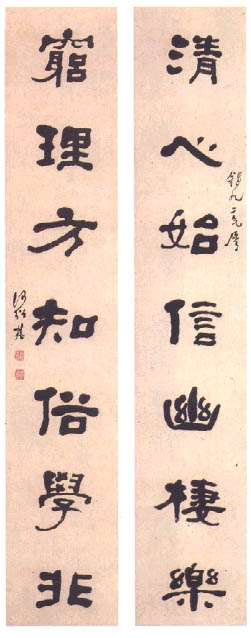 清心始信幽棲樂
錫九二兄屬
窮理方知俗學非
何紹基